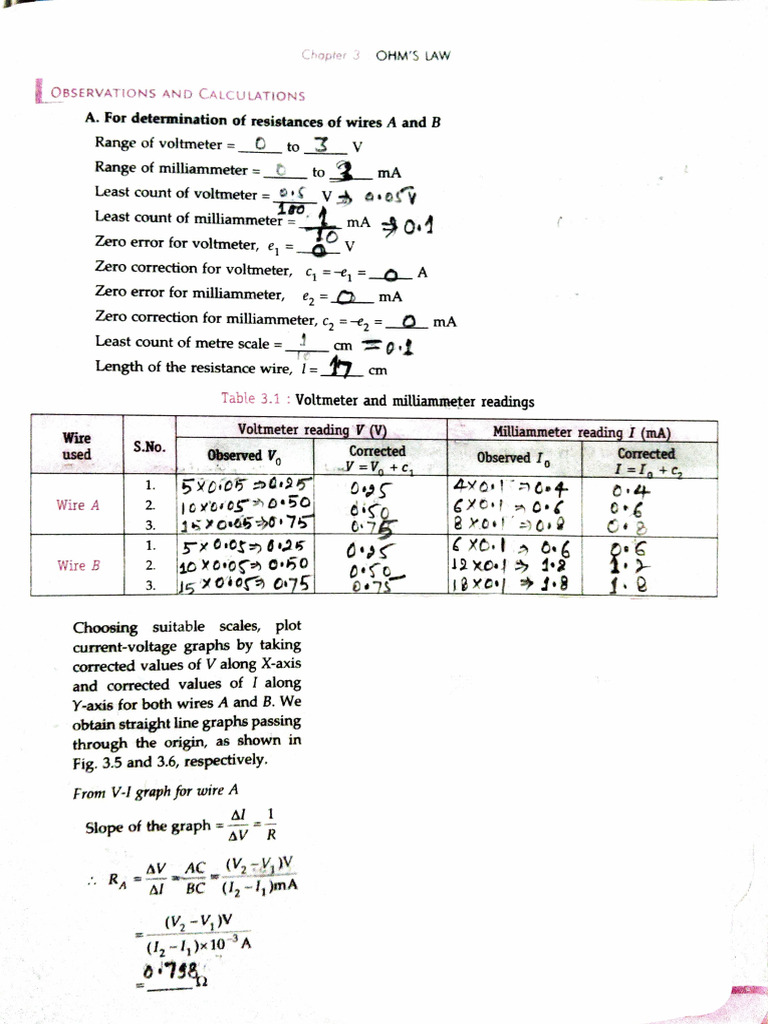 Chapter 3 OHM'S LAW
OBSERVATIONS AND CALCULATIONS
A. For determination of resistances of wires A and B
Range of voltmeter = 0 to 3 V
Range of milliammeter = 0 to 3 mA
Least count of voltmeter = 0.5/100 V ⇒ 0.05V
Least count of milliammeter = 1/10 mA ⇒ 0.1
Zero error for voltmeter, e₁ = 0 V
Zero correction for voltmeter, c₁ = –e₁ = 0 A
Zero error for milliammeter, e₂ = 0 mA
Zero correction for milliammeter, c₂ = –e₂ = 0 mA
Least count of metre scale = 1/10 cm = 0.1
Length of the resistance wire, l = 17 cm
Table 3.1 : Voltmeter and milliammeter readings
Wire used S.No. Voltmeter reading V (V) Milliammeter reading I (mA)
Observed V₀ Corrected V = V₀ + c₁ Observed I₀ Corrected I = I₀ + c₂
Wire A
1. 5×0.05 ⇒ 0.25 0.25 4×0.1 ⇒ 0.4 0.4
2. 10×0.05 ⇒ 0.50 0.50 6×0.1 ⇒ 0.6 0.6
3. 15×0.05 ⇒ 0.75 0.75 8×0.1 ⇒ 0.8 0.8
Wire B
1. 5×0.05 ⇒ 0.25 0.25 6×0.1 ⇒ 0.6 0.6
2. 10×0.05 ⇒ 0.50 0.50 12×0.1 ⇒ 1.2 1.2
3. 15×0.05 ⇒ 0.75 0.75 18×0.1 ⇒ 1.8 1.8
Choosing suitable scales, plot
current-voltage graphs by taking
corrected values of V along X-axis
and corrected values of I along
Y-axis for both wires A and B. We
obtain straight line graphs passing
through the origin, as shown in
Fig. 3.5 and 3.6, respectively.
From V-I graph for wire A
Slope of the graph = ΔI/ΔV = 1/R
∴ R_A = ΔV/ΔI = AC/BC = (V₂ – V₁)V/(I₂ – I₁)mA
= (V₂ – V₁)V/(I₂ – I₁)×10⁻³ A
= 0.798 Ω